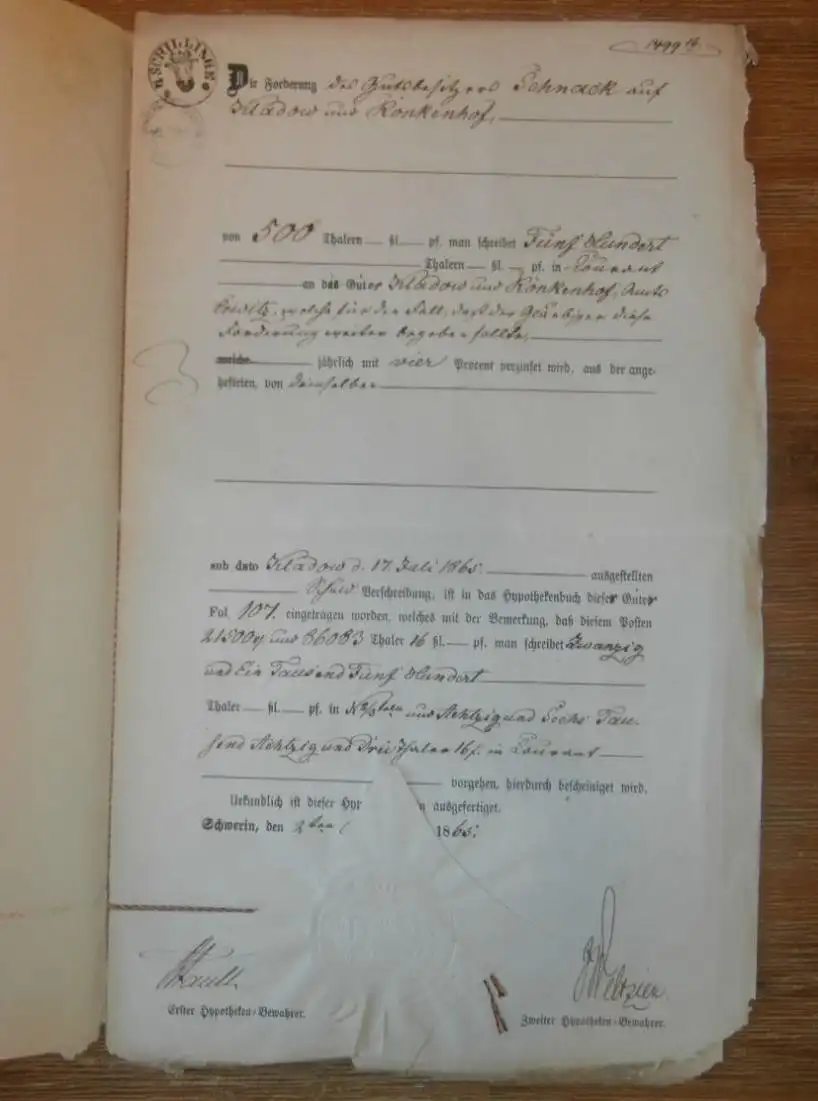 SCHILLINGE.
1499
Die Forderung des Gutsbesitzers Schnack auf
Kladow und Könkenhof,
von 500 Thalern — ßl. — pf. man schreibet Fünf Hundert
Thalern — ßl. — pf. in Courant
an das Güter Kladow und Könkenhof, Amts
welche für den Fall, daß der Gläubiger diese
Forderung weiter begeben sollte,
welche jährlich mit vier Procent verzinset wird, aus der ange-
hefteten, von demselben
sub dato Kladow d. 17 Juli 1865. ausgestellten
Schuld Verschreibung, ist in das Hypothekenbuch dieser Güter
Fol. 107. eingetragen worden, welches mit der Bemerkung, daß diesem Posten
21500 und 86083 Thaler 16 ßl. — pf. man schreibet Zwanzig
und Ein Tausend Fünf Hundert
Thaler — ßl. — pf. in N2/3teln und Achtzig und Sechs Tau-
send Achtzig und Drei Thaler 16 ß. in Courant
vorgehen, hierdurch bescheiniget wird.
Urkundlich ist dieser Hyp n ausgefertiget.
Schwerin, den 2ten 1865.
Weltzien
Erster Hypotheken-Bewahrer.
Zweiter Hypotheken-Bewahrer.